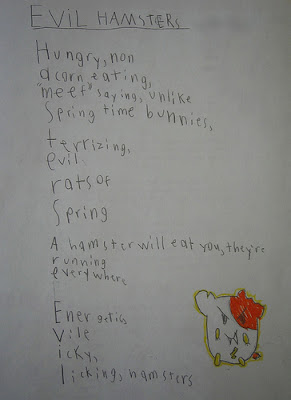 EVIL HAMSTERS
Hungry, non
acorn eating,
"meet" saying, unlike
Spring time bunnies,
terrizing,
evil
rats of
Spring
A hamster will eat you, they're
running
everywhere
Energetic,
Vile
icky,
licking, hamsters